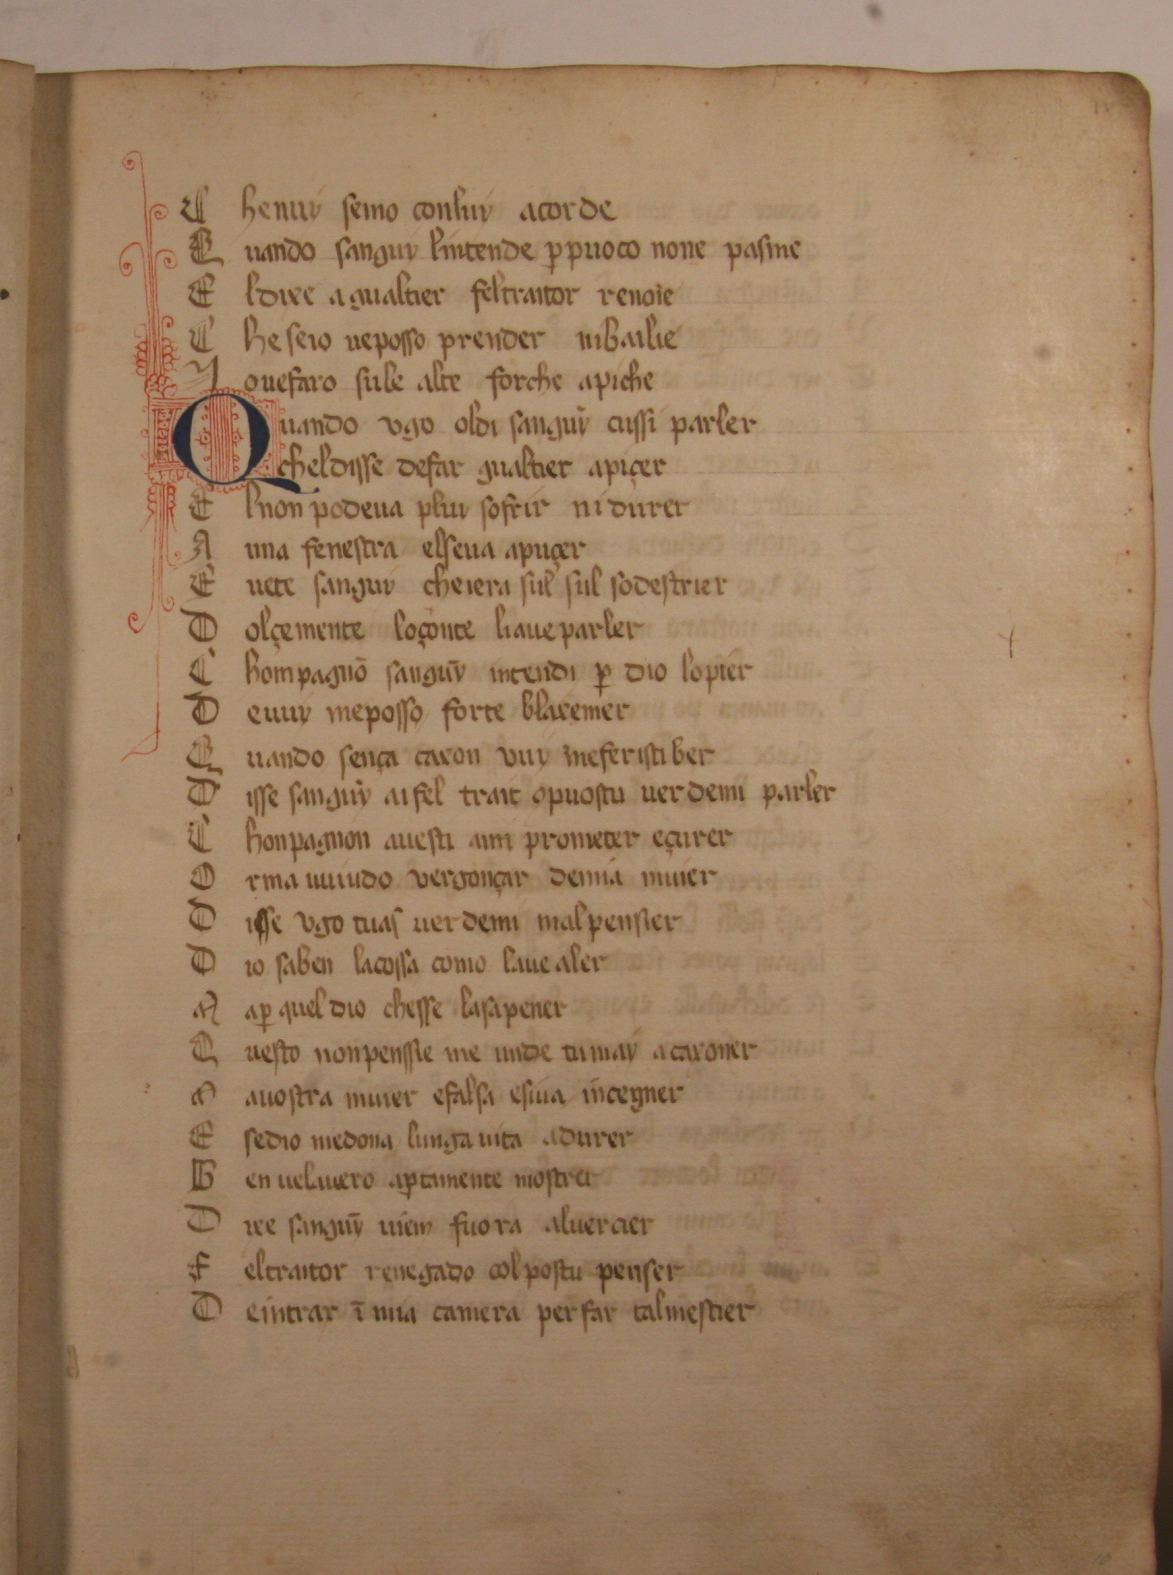 C henuy semo conluy acorde
Q uando sanguȳ lintende ꝑpuoco none pasme
E ldixe agualtier feltraitor renoie
C he seio ueposso prender nibailie
I ouefaro sule alte forche apiche
Quando vgo oldi sanguȳ cussi parler
E cheldisse defar gualtier apiçer
E lnon podeua pluy sofrir ni durer
A una fenestra elseua apuçer
E uete sanguy cheiera sul sul sodestrier
D olçemente loçonte li aue parler
C hompagnō sanguȳ intendi ꝑ dio lopier
D euuy meposso forte blaxemer
Q uando sença caxon vuy meferisti ber
D isse sanguȳ aifel trait opuostu uer demi parler
C honpagnon auesti ami prometer eçurer
O rma uuiudo vergonçar demia muier
D isse vgo tuas uer demi mal pensier
D io saben lacossa como laue aler
M aꝑ quel dio chesse lasa pener
Q uesto nonpenssie me unde tumay acaxoner
M auostra muier efalsa esiua inçegner
E sedio medona lunga uita adurer
B en uelauero aꝑtamente mostrer
D ixe sanguȳ uiem fuora aluercier
F eltraitor renegado col postu penser
D eintrar ī mia camera per far talmestier